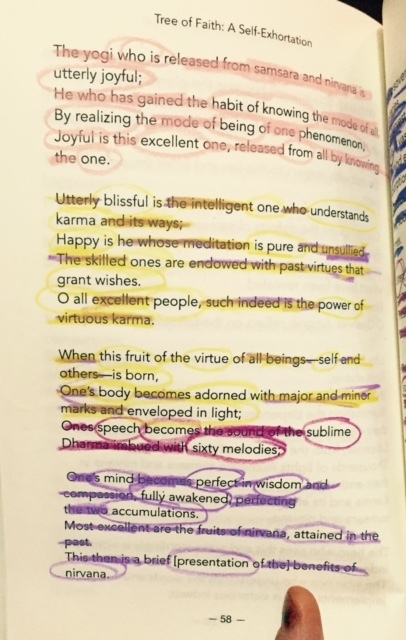 Tree of Faith: A Self-Exhortation
The yogi who is released from samsara and nirvana is
utterly joyful;
He who has gained the habit of knowing the mode of all
By realizing the mode of being of one phenomenon,
Joyful is this excellent one, released from all by knowing
the one.
Utterly blissful is the intelligent one who understands
karma and its ways;
Happy is he whose meditation is pure and unsullied.
The skilled ones are endowed with past virtues that
grant wishes.
O all excellent people, such indeed is the power of
virtuous karma.
When this fruit of the virtue of all beings—self and
others—is born,
One's body becomes adorned with major and minor
marks and enveloped in light;
Ones speech becomes the sound of the sublime
Dharma imbued with sixty melodies;
One's mind becomes perfect in wisdom and
compassion, fully awakened, perfecting
the two accumulations.
Most excellent are the fruits of nirvana, attained in the
past.
This then is a brief [presentation of the] benefits of
nirvana.
— 58 —